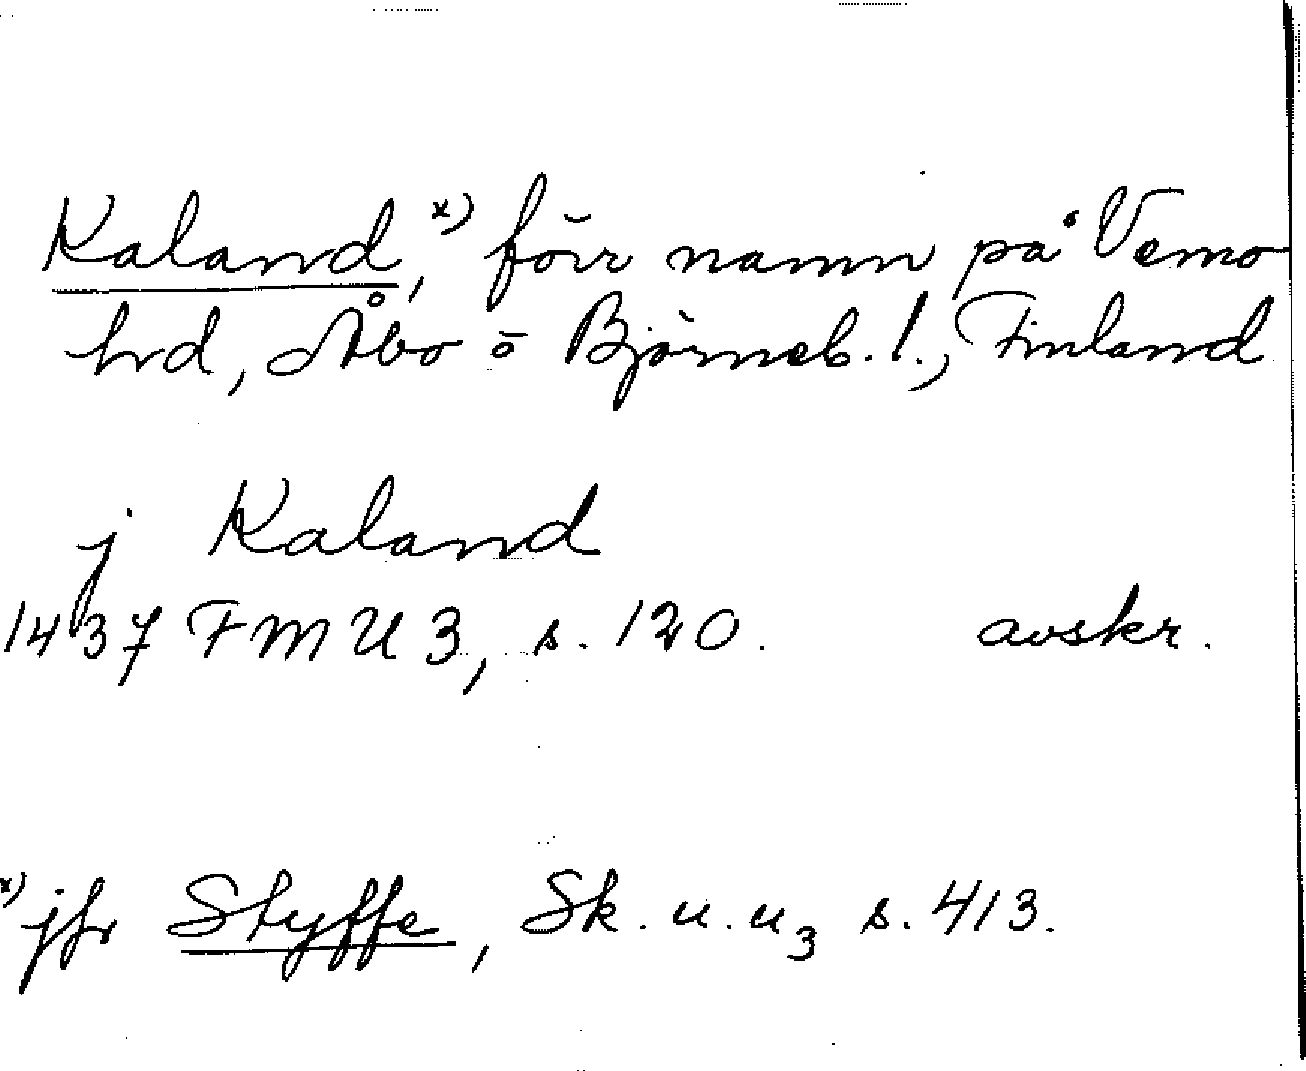 Kaland,x) förr namn på Vemo
hd, Åbo o Björneb. l., Finland
j Kaland
1437 FMU 3, s. 120. avskr.
x) jfr Styffe, Sk. u. u3 s. 413.